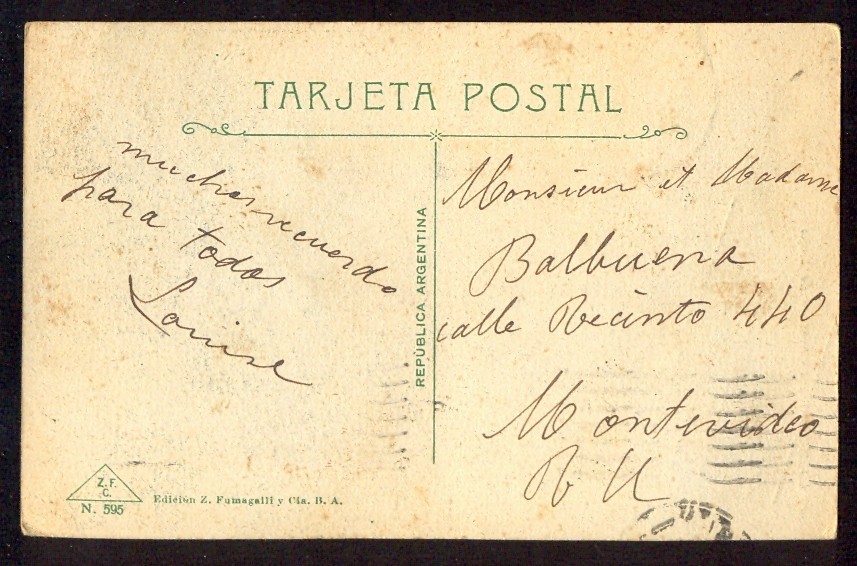 TARJETA POSTAL
muchos recuerdo
para todos
Louise
REPÚBLICA ARGENTINA
Monsieur et Madame
Balbuena
calle Recinto 440
Montevideo
R U
Z. F.
C.
N. 595
Edición Z. Fumagalli y Cía. B. A.